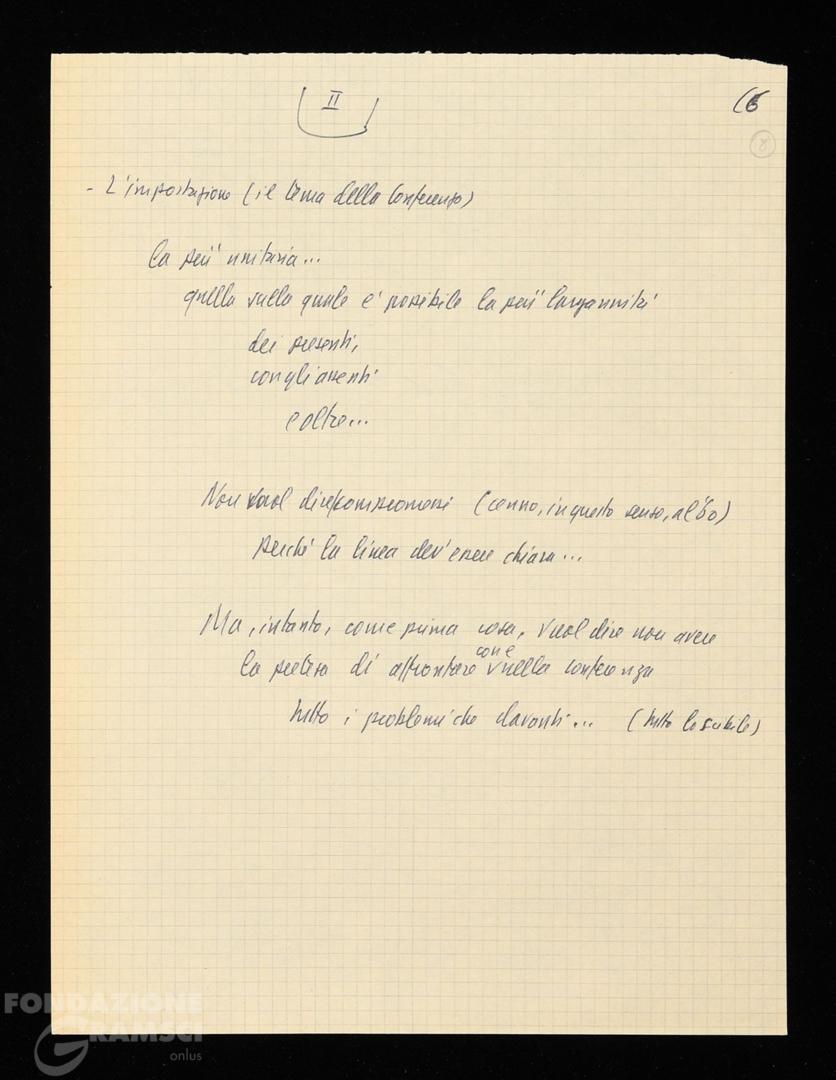 II
(6
8
- L'impostazione (il tema della Conferenza)
la più unitaria...
quella sulla quale e' possibile la più larga unità
dei presenti,
con gli assenti
e oltre...
Non vuol dire compromessi (cenno, in questo senso, al '60)
perché la linea dev'essere chiara...
Ma, intanto, come prima cosa, vuol dire non avere
la pretesa di affrontare nella conferenza
tutto i problemi che davanti... (tutto lo )
FONDAZIONE
GRAMSCI
onlus